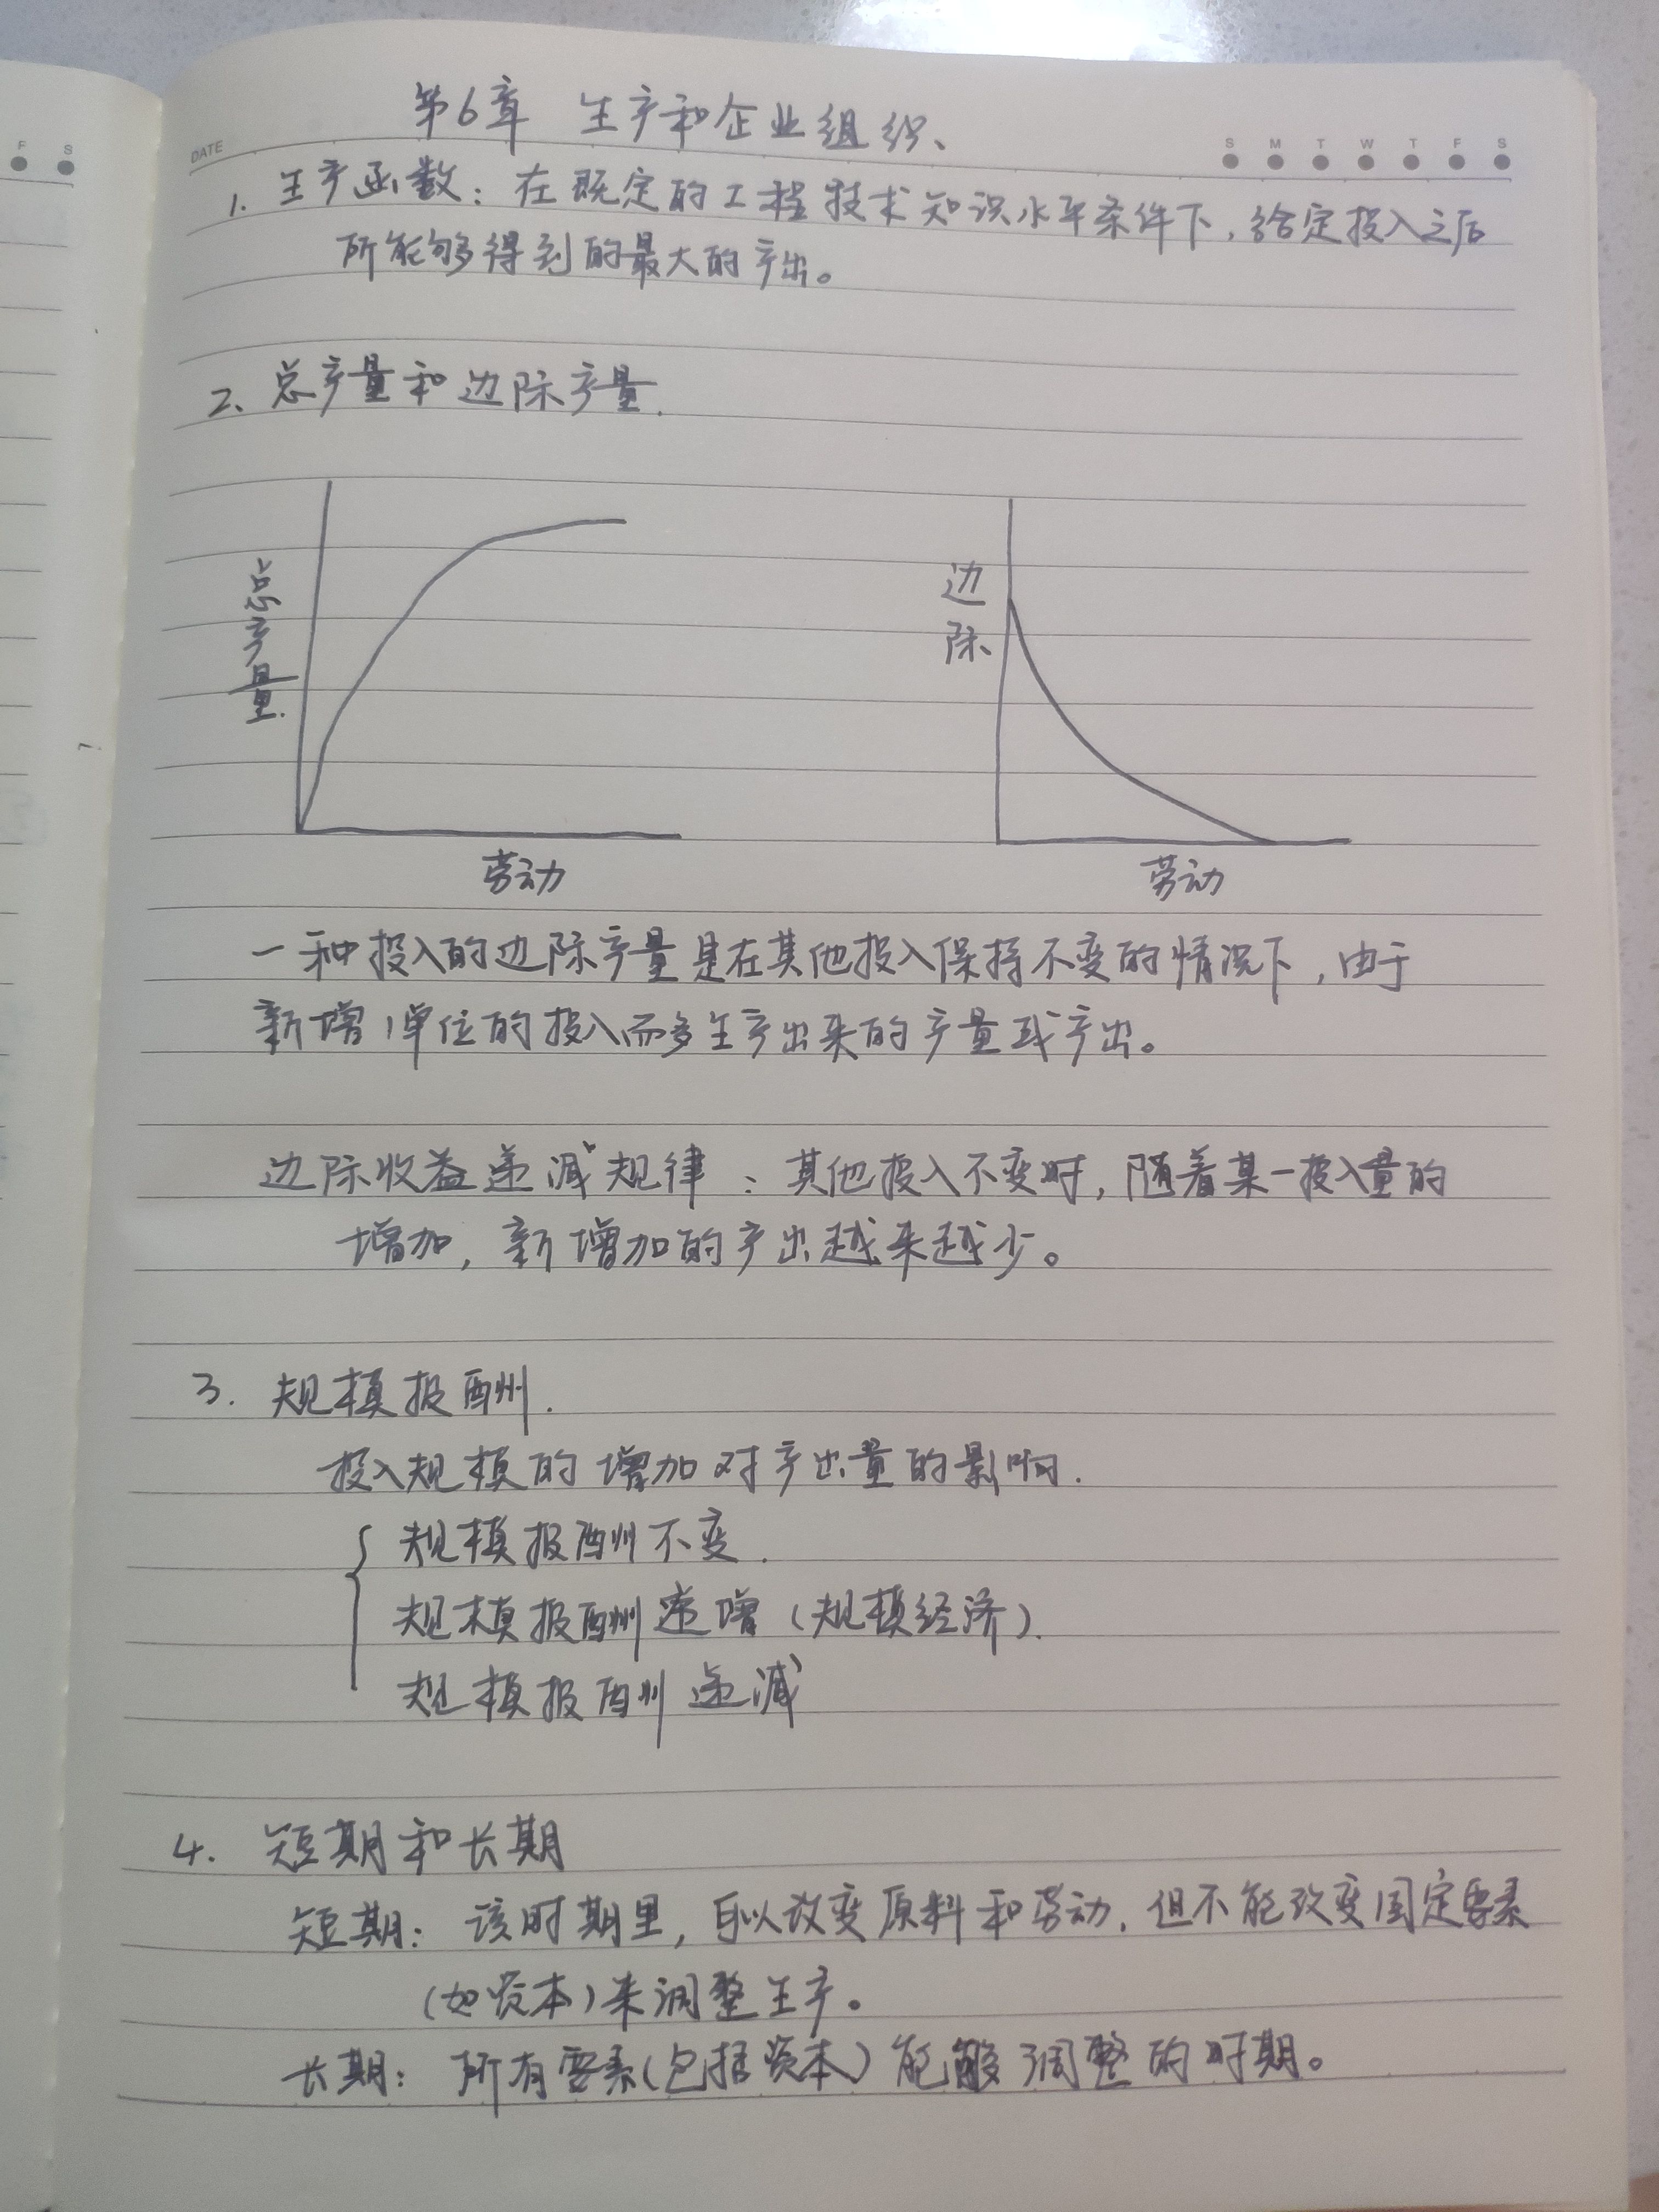 第6章 生产和企业组织、
DATE
S M T W T F S
F S
1. 生产函数：在既定的工程技术知识水平条件下，给定投入之后
所能够得到的最大的产出。
2、总产量和边际产量.
总产量.
劳动
边际
劳动
一种投入的边际产量是在其他投入保持不变的情况下，由于
新增1单位的投入而多生产出来的产量或产出。
边际收益递减规律：其他投入不变时，随着某一投入量的
增加，新增加的产出越来越少。
3. 规模报酬.
投入规模的增加对产出量的影响.
规模报酬不变.
规模报酬递增（规模经济）.
规模报酬递减
4. 短期和长期
短期：该时期里，可以改变原料和劳动，但不能改变固定要素
（如资本）来调整生产。
长期：所有要素（包括资本）能够调整的时期。